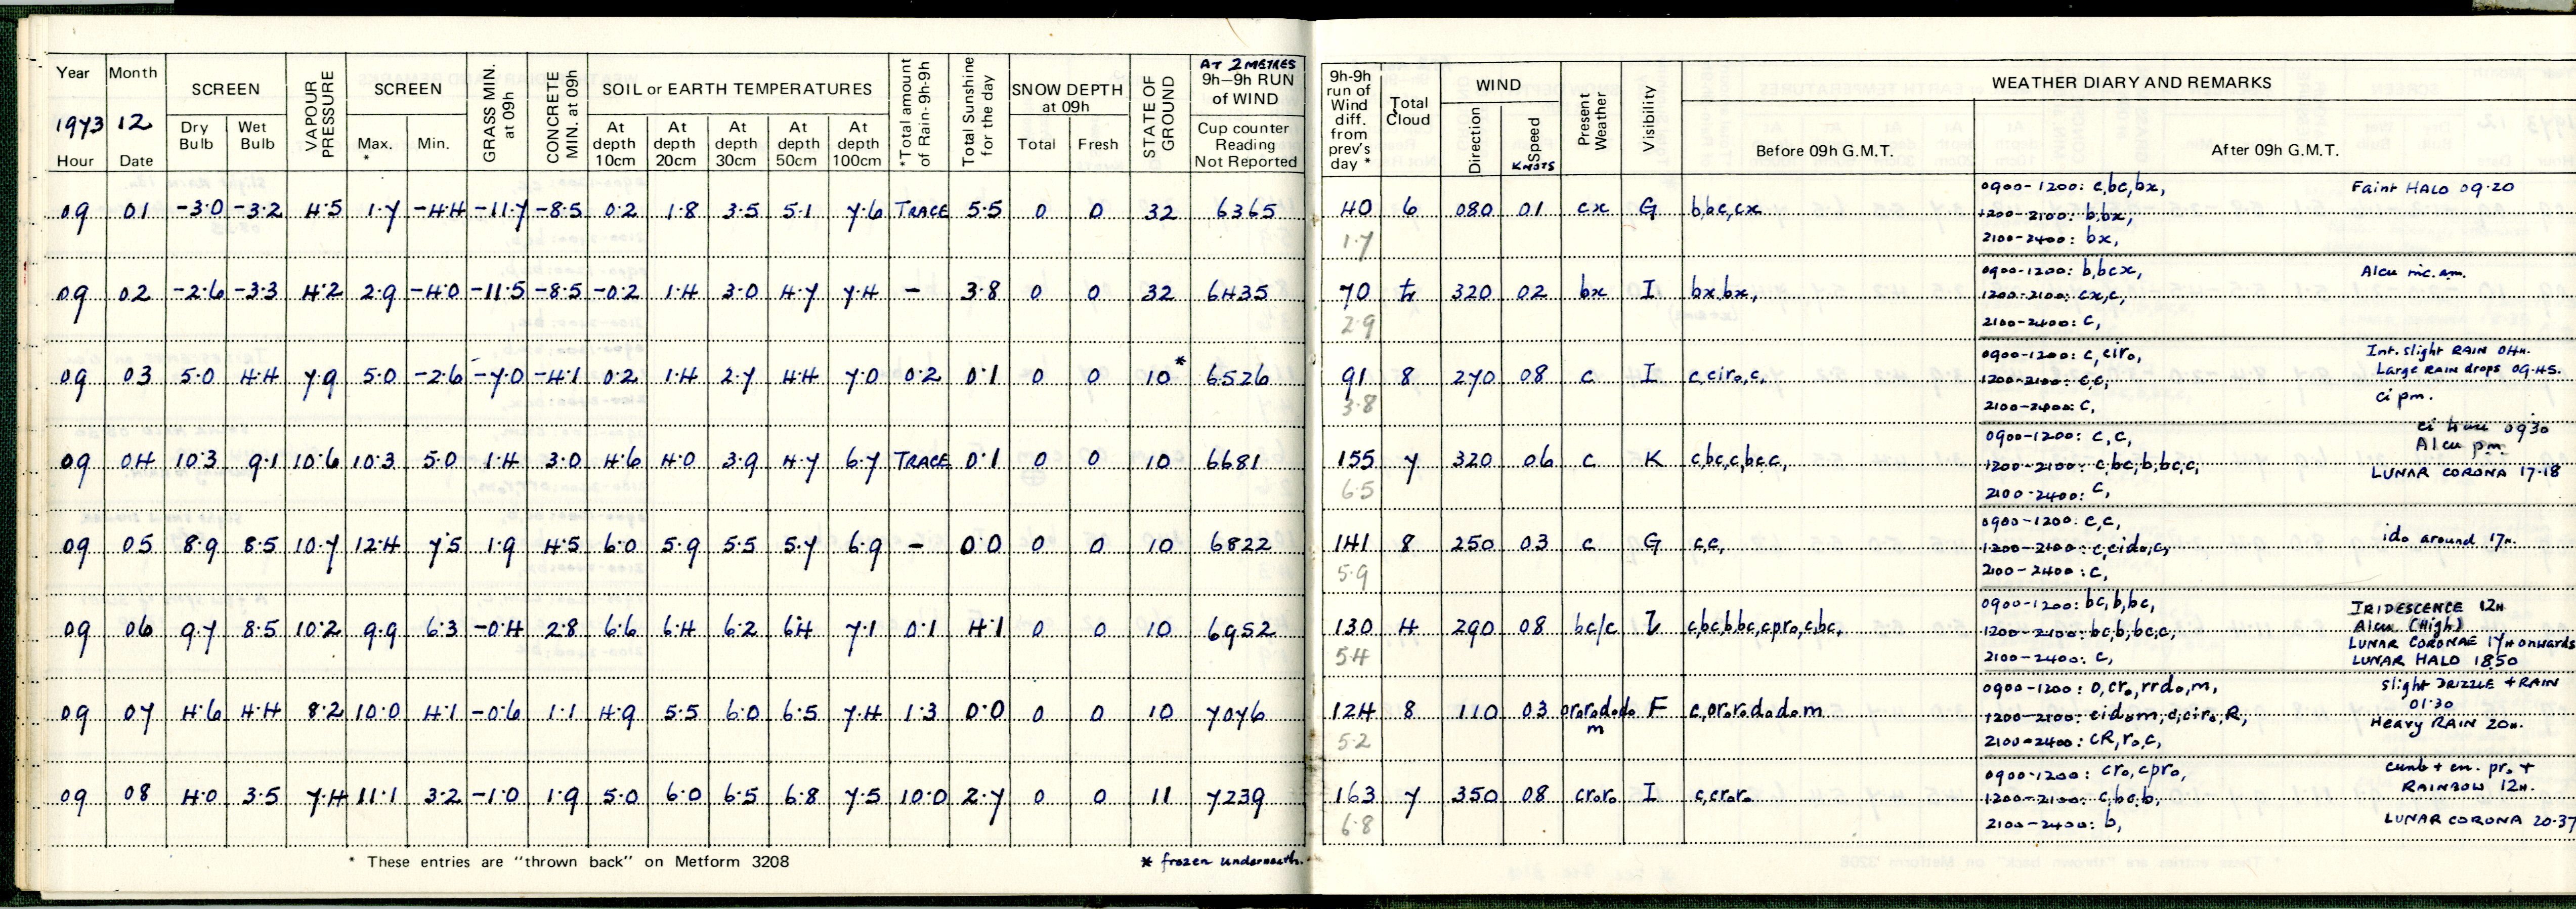 Year Month SCREEN VAPOUR PRESSURE SCREEN GRASS MIN. at 09h CONCRETE MIN. at 09h SOIL or EARTH TEMPERATURES *Total amount of Rain-9h-9h Total Sunshine for the day SNOW DEPTH at 09h STATE OF GROUND AT 2 METRES 9h–9h RUN of WIND
1973 12 Dry Bulb Wet Bulb Max. * Min. At depth 10cm At depth 20cm At depth 30cm At depth 50cm At depth 100cm Total Fresh Cup counter Reading Not Reported *
Hour Date
09 01 -3.0 -3.2 4.5 1.7 -4.4 -11.7 -8.5 0.2 1.8 3.5 5.1 7.6 TRACE 5.5 0 0 32 6365
09 02 -2.6 -3.3 4.2 2.9 -4.0 -11.5 -8.5 -0.2 1.4 3.0 4.7 7.4 - 3.8 0 0 32 6435
09 03 5.0 4.4 7.9 5.0 -2.6 -7.0 -4.1 0.2 1.4 2.7 4.4 7.0 0.2 0.1 0 0 10* 6526
09 04 10.3 9.1 10.6 10.3 5.0 1.4 3.0 4.6 4.0 3.9 4.7 6.7 TRACE 0.1 0 0 10 6681
09 05 8.9 8.5 10.7 12.4 7.5 1.9 4.5 6.0 5.9 5.5 5.7 6.9 - 0.0 0 0 10 6822
09 06 9.7 8.5 10.2 9.9 6.3 -0.4 2.8 6.6 6.4 6.2 6.4 7.1 0.1 4.1 0 0 10 6952
09 07 4.6 4.4 8.2 10.0 4.1 -0.6 1.1 4.9 5.5 6.0 6.5 7.4 1.3 0.0 0 0 10 7076
09 08 4.0 3.5 7.4 11.1 3.2 -1.0 1.9 5.0 6.0 6.5 6.8 7.5 10.0 2.7 0 0 11 7239
* These entries are "thrown back" on Metform 3208
* frozen underneath.
9h-9h run of Wind diff. from prev's day * Total Cloud WIND Present Weather Visibility WEATHER DIARY AND REMARKS
Direction Speed KNOTS Before 09h G.M.T. After 09h G.M.T.
40 6 080 01 cx G b,bc,cx 0900-1200: c,bc,bx, Faint HALO 09.20
1200-2100: b,bx,
1.7 2100-2400: bx,
70 tr 320 02 bx I bx,bx, 0900-1200: b,bcx, Alcu inc. am.
1200-2100: cx,c,
2.9 2100-2400: c,
91 8 270 08 c I c,ciro,c, 0900-1200: c,ciro, Int. slight RAIN 04H.
1200-2100: c,c, Large RAIN drops 09.45.
3.8 2100-2400: c, ci pm.
155 7 320 06 c K c,bc,c,bc,c, 0900-1200: c,c, ci 0930
Alcu pm.
1200-2100: c,bc,b,bc,c, LUNAR CORONA 17.18
6.5 2100-2400: c,
141 8 250 03 c G c,c, 0900-1200: c,c,
1200-2100: c,cido,c, ido around 17H.
5.9 2100-2400: c,
130 4 290 08 bc/c I c,bc,b,bc,cpro,c,bc, 0900-1200: bc,b,bc, IRIDESCENCE 12H
Alcu (High)
1200-2100: bc,b,bc,c, LUNAR CORONAE 17H onwards
5.4 2100-2400: c, LUNAR HALO 1850
124 8 110 03 ororododo m F c,ororododom 0900-1200: o,cro,rrdo,m, slight DRIZZLE + RAIN 01.30
1200-2100: cidom,c,ciro,R, Heavy RAIN 20H.
5.2 2100-2400: cR,ro,c,
163 7 350 08 croro I c,croro 0900-1200: cro,cpro, cumb + cu. pro +
RAINBOW 12H.
1200-2100: c,bc,b,
6.8 2100-2400: b, LUNAR CORONA 20.37